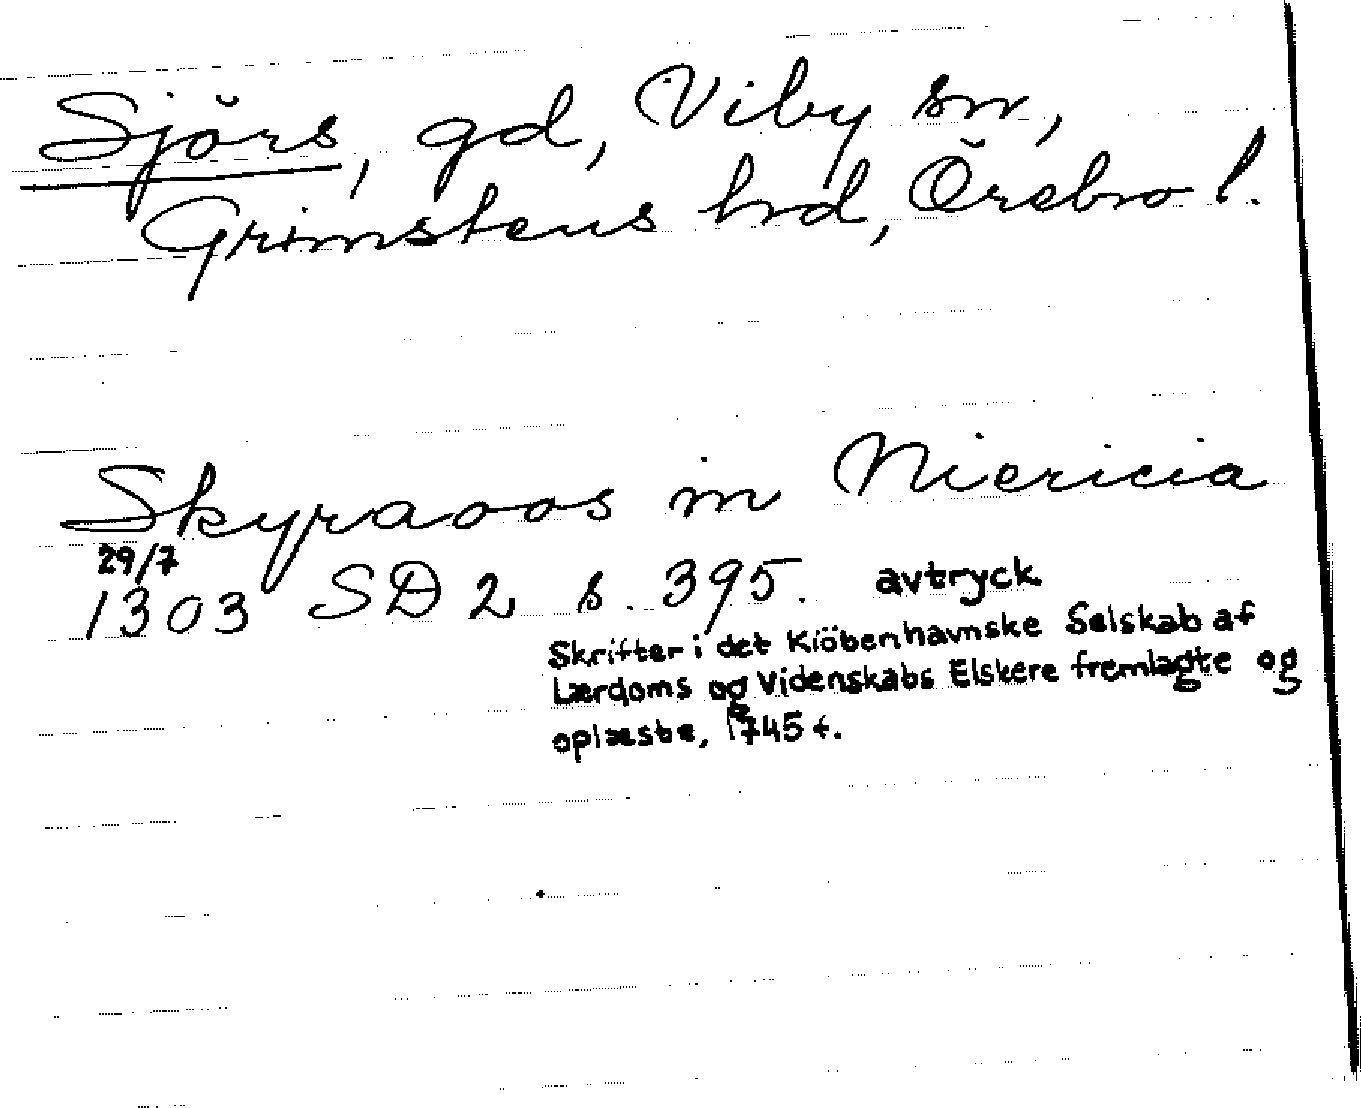 Sjörs, gd, Viby sn,
Grimstens hrd, Örebro l.
Skyraoos in Niericia
29/7
1303 SD 2 s. 395. avtryck
Skrifter i det Kiöbenhavnske Selskab af
Lærdoms og Videnskabs Elskere fremlagte og
oplæste, 1745 f.